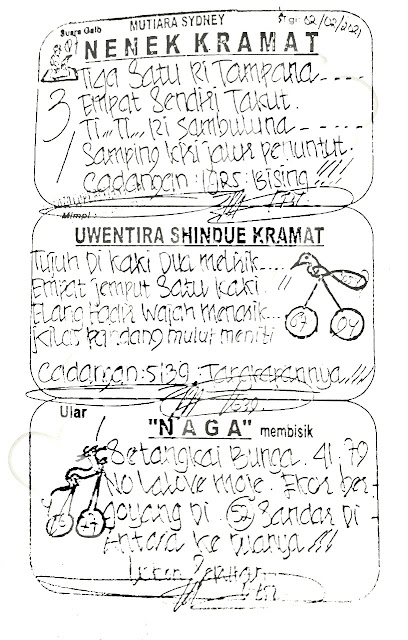 Suara Gaib
MUTIARA SYDNEY
02/02/2021
NENEK KRAMAT
Tiga Satu Di Tampana
3 Empat Sendiri Takut.
Ti,,, Ti,,, Di Sambuluna
1 Samping Kiri jalur penuntut.
Cadangan : Bising !!!
Mimpi :
UWENTIRA SHINDUE KRAMAT
Tujuh Di Kaki Dua melirik....
Empat jemput Satu Kaki
Elang Hadir Wajah menarik
Kilas Pandang mulut meniti
07
04
Cadangan : 5139. !!!
Ular
"NAGA" membisik
Setangkai Bunga. 41. 79
No Ekor ber-
goyang Di 52 Bandar Di
Antara Ke Duanya !!!